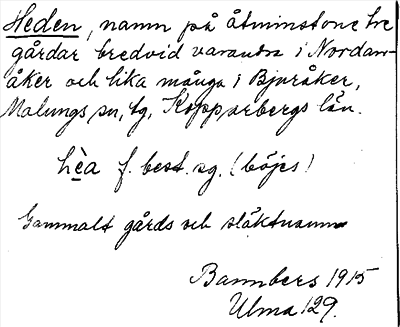 Heden, namn på åtminstone tre
gårdar bredvid varandra i Nordan-
åker och lika många i Bjuråker,
Malungs sn, Kopparbergs län.
hèa f. best. sg. (böjes)
Gammalt gårds och släktnamn
Bannbers 1915
Ulma 129.